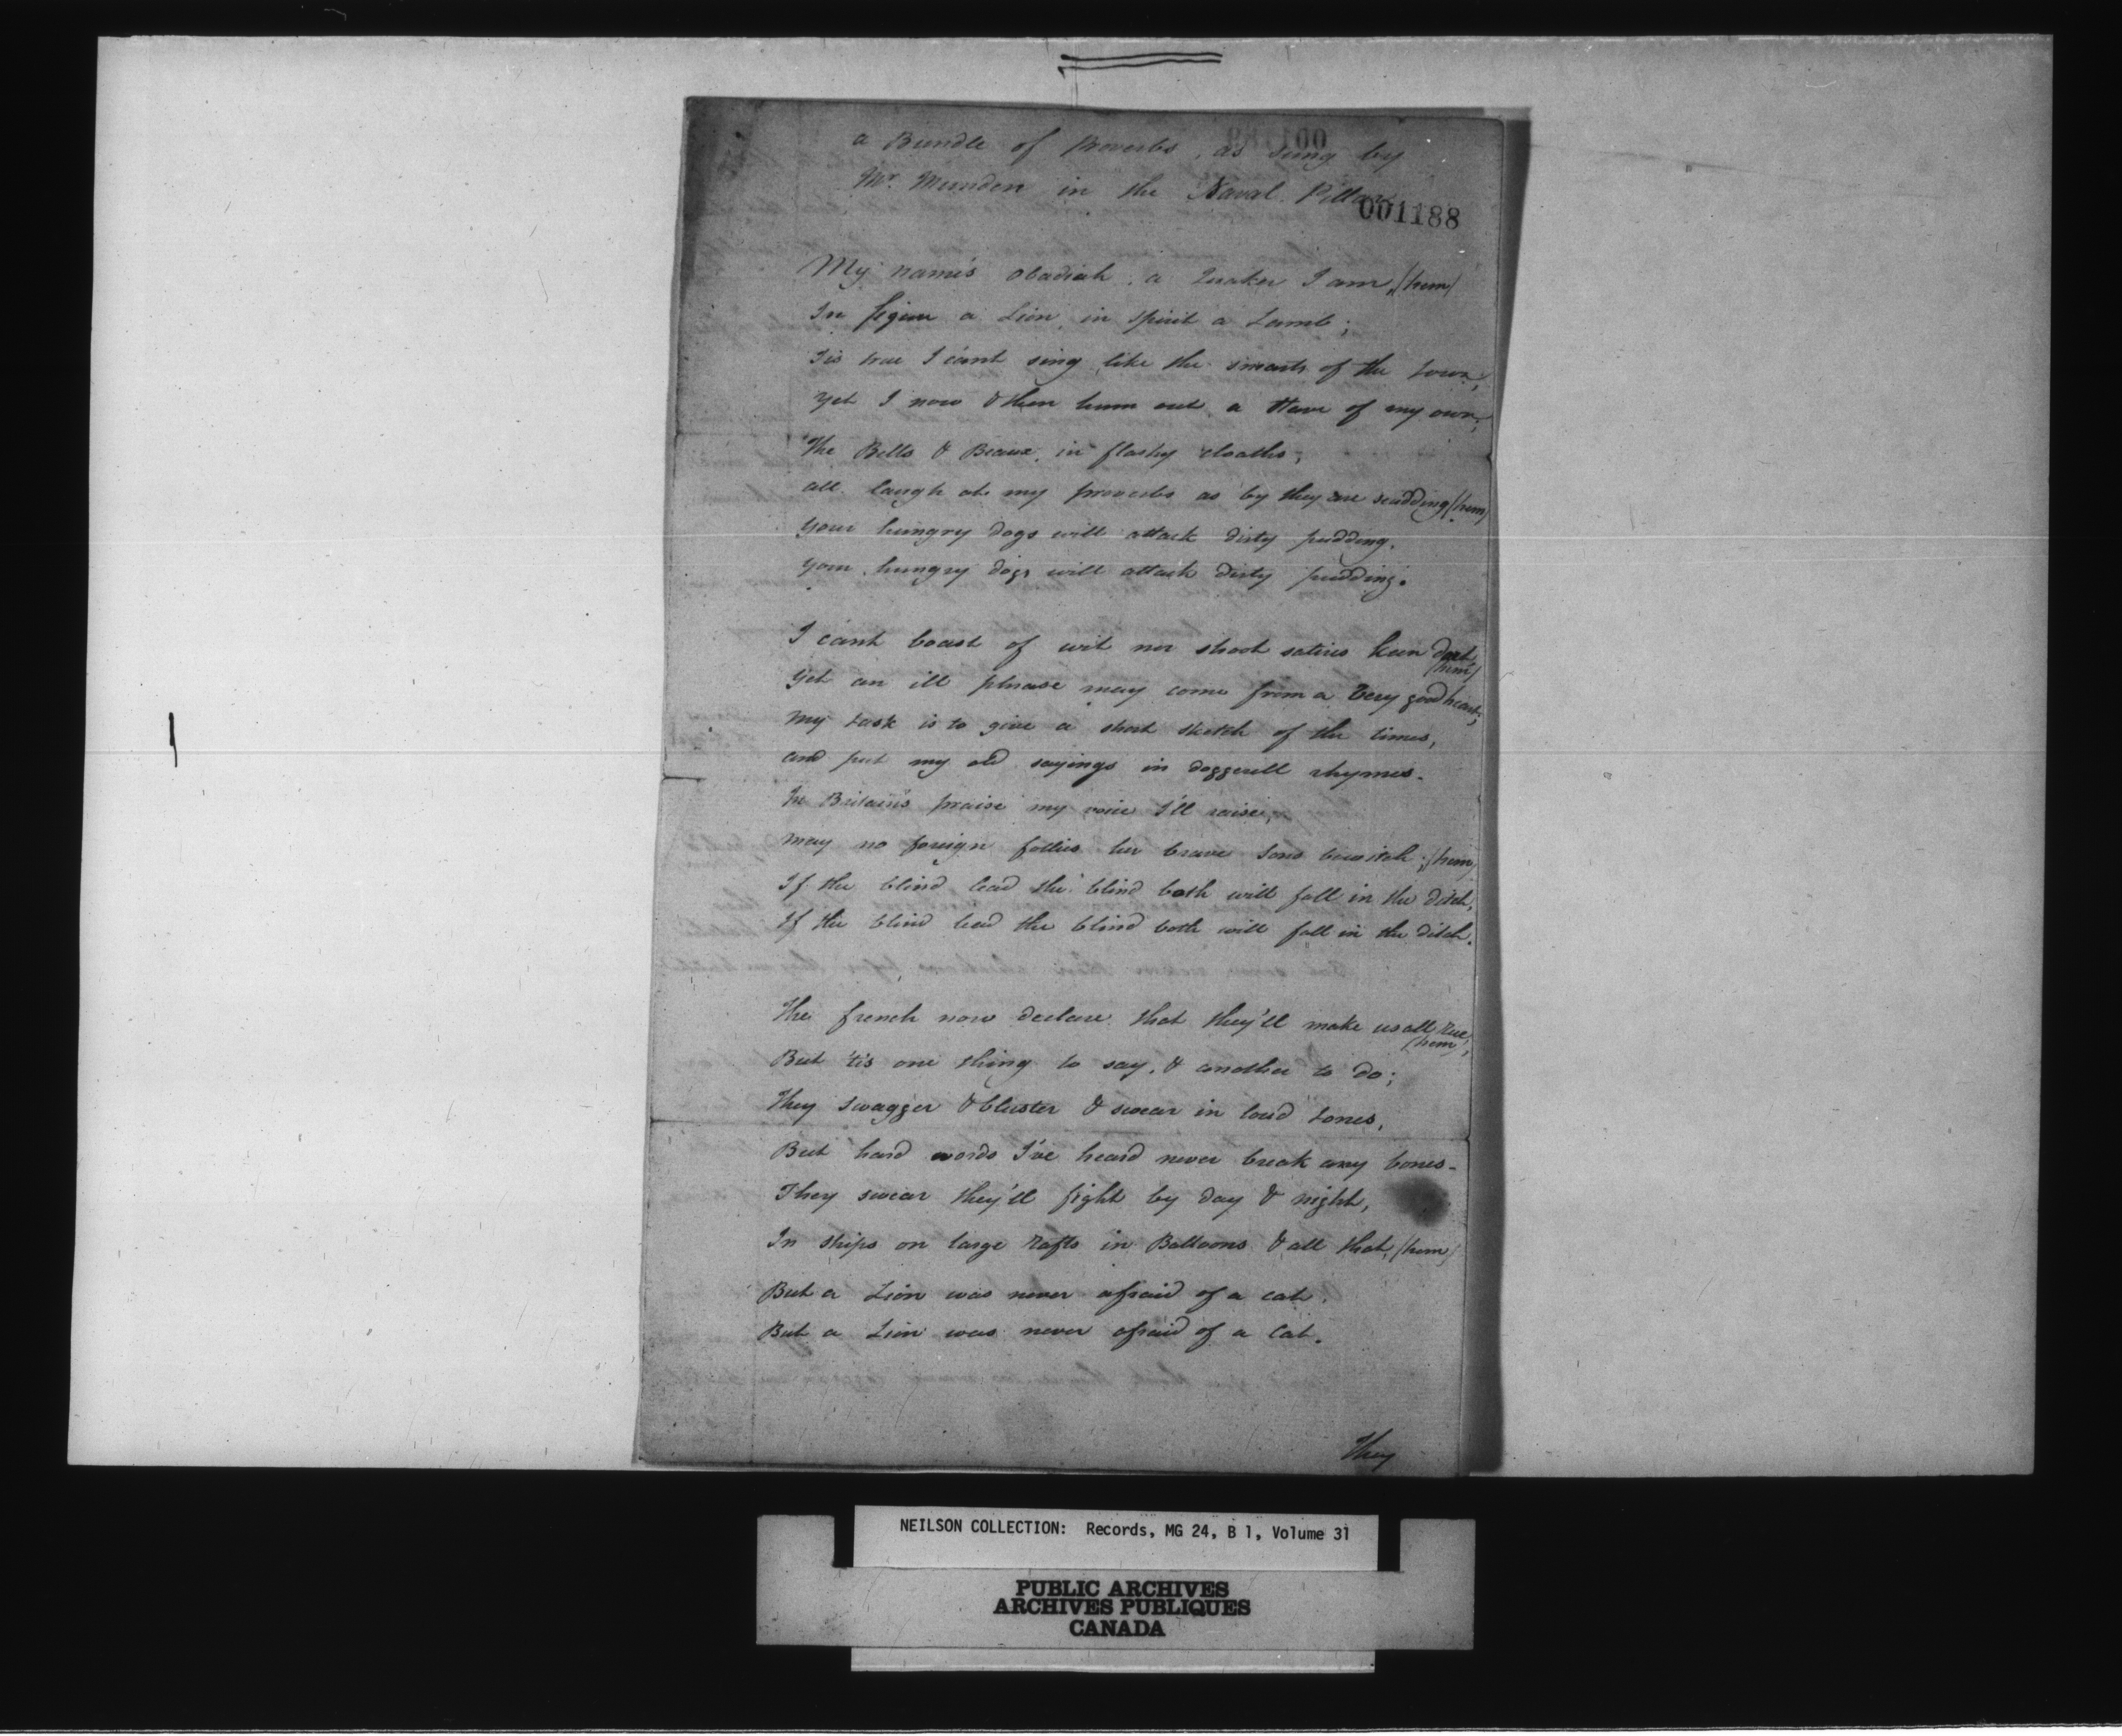 a Bundle of Proverbs, as sung by
Mr. Munden in the Naval Pillar
001188
My name's Obadiah, a Quaker I am, (hem)
In figure a Lion, in spirit a Lamb;
Tis true I can't sing like the smarts of the town;
Yet I now & then hum out a stave of my own;
The Bells & Beaux, in flashy cloaths,
all laugh at my proverbs as by they are scudding (hem)
Your hungry dogs will attack dirty pudding.
Your hungry dogs will attack dirty pudding.
I can't boast of wit nor shoot satires keen dart
(hem)
Yet an ill phrase may come from a very good heart;
My task is to give a short sketch of the times,
and put my old sayings in doggerell rhymes.
In Britain's praise my voice I'll raise,
May no foreign follies her brave sons bewitch; (hem)
If the blind lead the blind both will fall in the ditch,
If the blind lead the blind both will fall in the ditch.
The french now declare that they'll make us all rue,
(hem)
But 'tis one thing to say, & another to do;
They swagger & bluster & swear in loud tones,
But hard words I've heard never break any bones-
They swear they'll fight by day & night,
In ships on large rafts in Balloons & all that, (hem)
But a Lion was never afraid of a cat.
But a Lion was never afraid of a Cat.
They
NEILSON COLLECTION: Records, MG 24, B 1, Volume 31
PUBLIC ARCHIVES
ARCHIVES PUBLIQUES
CANADA